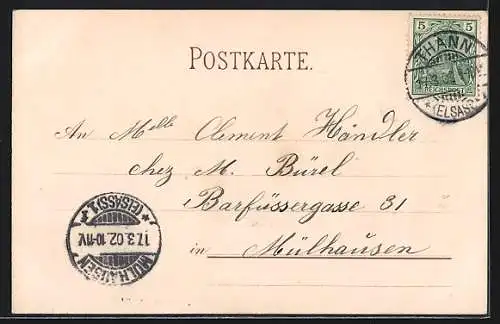 5 5
REICHSPOST
THANN
*(ELSASS)
POSTKARTE.
An Melle Clement Händler
chez M. Bürel
Barfüssergasse 31
in Mülhausen
MÜLHAUSEN
17.3.02.10-11V.
*(ELSASS)1*